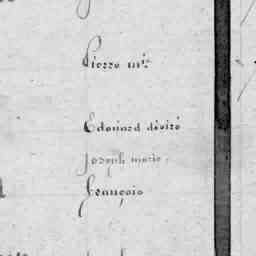 Pierre m.ie
Edouard désiré
Joseph marie.
François